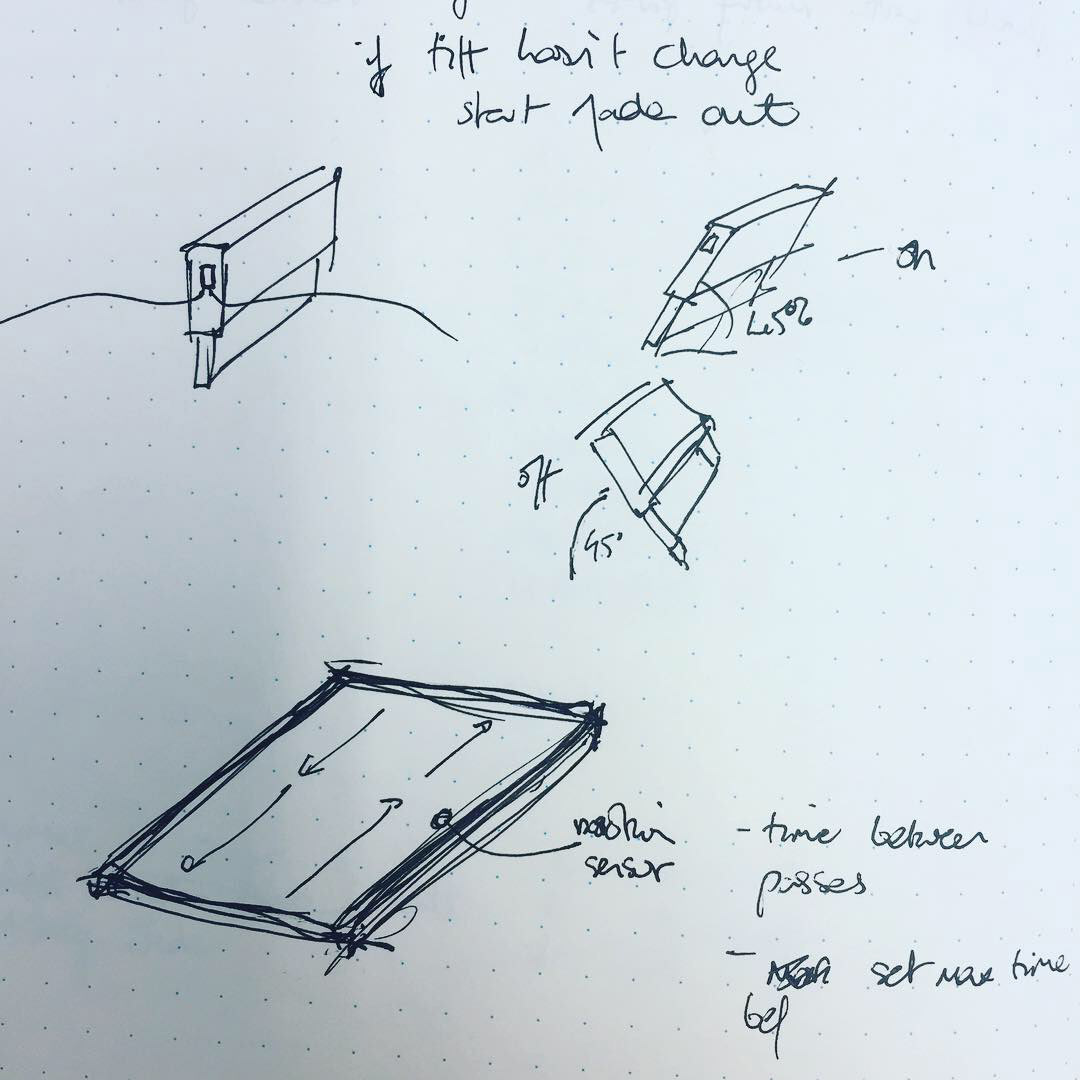 if tilt hasn't change
start fade out
on
45°
off
45°
motion
sensor
- time between
passes
- set max time
bef